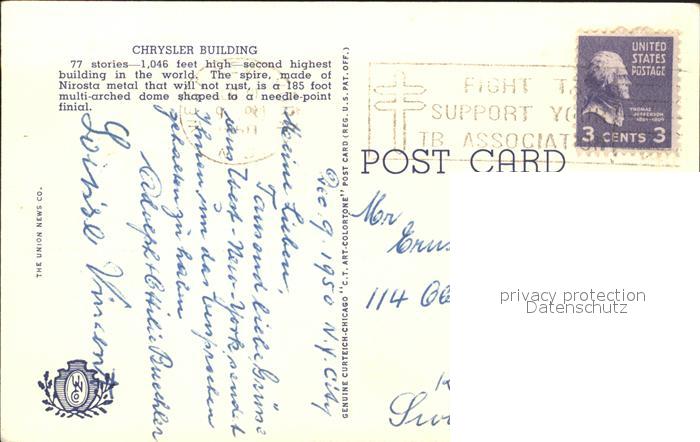 CHRYSLER BUILDING
77 stories—1,046 feet high—second highest
building in the world. The spire, made of
Nirosta metal that will not rust, is a 185 foot
multi-arched dome shaped to a needle-point
finial.
THE UNION NEWS CO.
GENUINE CURTEICH-CHICAGO "C.T. ART-COLORTONE" POST CARD (REG. U.S. PAT. OFF.)
Dec. 9. 1950 N.Y. City
Meine Lieben,
Tausend liebe Grüsse
aus West-New-York sendet
Ihnen um das Versprechen
gehalten zu haben
Adolph & Ottilie Buechler
Louise
FIGHT T
SUPPORT YO
TB ASSOCIATI
UNITED
STATES
POSTAGE
THOMAS
JEFFERSON
1801-1809
3 CENTS 3
POST CARD
Mr
114
privacy protection
Datenschutz